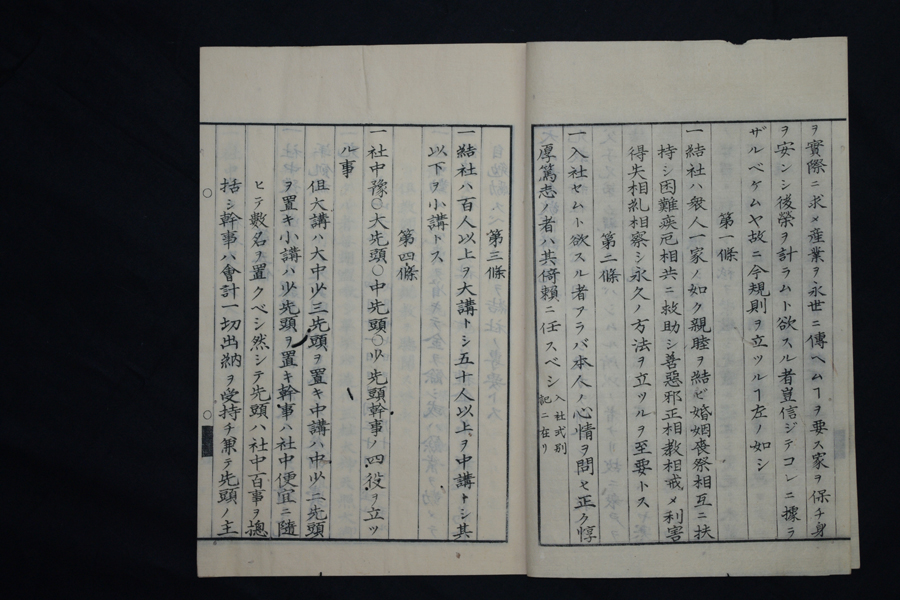 ヲ實際ニ求メ産業ヲ永世ニ傳ヘムヿヲ要ス家ヲ保チ身
ヲ安ンシ後榮ヲ計ラムト欲スル者豈信ジテコレニ據ラ
ザルベケムヤ故ニ今規則ヲ立ツルヿ左ノ如シ
第一條
一結社ハ衆人一家ノ如ク親睦ヲ結ビ婚姻喪祭相互ニ扶
持シ困難疾厄相共ニ救助シ善惡邪正相教相戒メ利害
得失相糺相察シ永久ノ方法ヲ立ツルヲ至要トス
第二條
一入社セムト欲スル者アラバ本人ノ心情ヲ問ヒ正ク惇
大厚篤志ノ者ハ其倚頼ニ任スベシ入社式別記ニ在リ
第三條
一結社ハ百人以上ヲ大講トシ五十人以上ヲ中講トシ其
以下ヲ小講トス
第四條
一社中豫〇大先頭〇中先頭〇少先頭幹事ノ四役ヲ立ツ
ル事
但大講ハ大中少三先頭ヲ置キ中講ハ中少二先頭
ヲ置キ小講ハ少先頭ヲ置キ幹事ハ社中便宜ニ隨
ヒテ數名ヲ置クベシ然シテ先頭ハ社中百事ヲ摠
括シ幹事ハ會計一切出納ヲ受持チ兼テ先頭ノ主